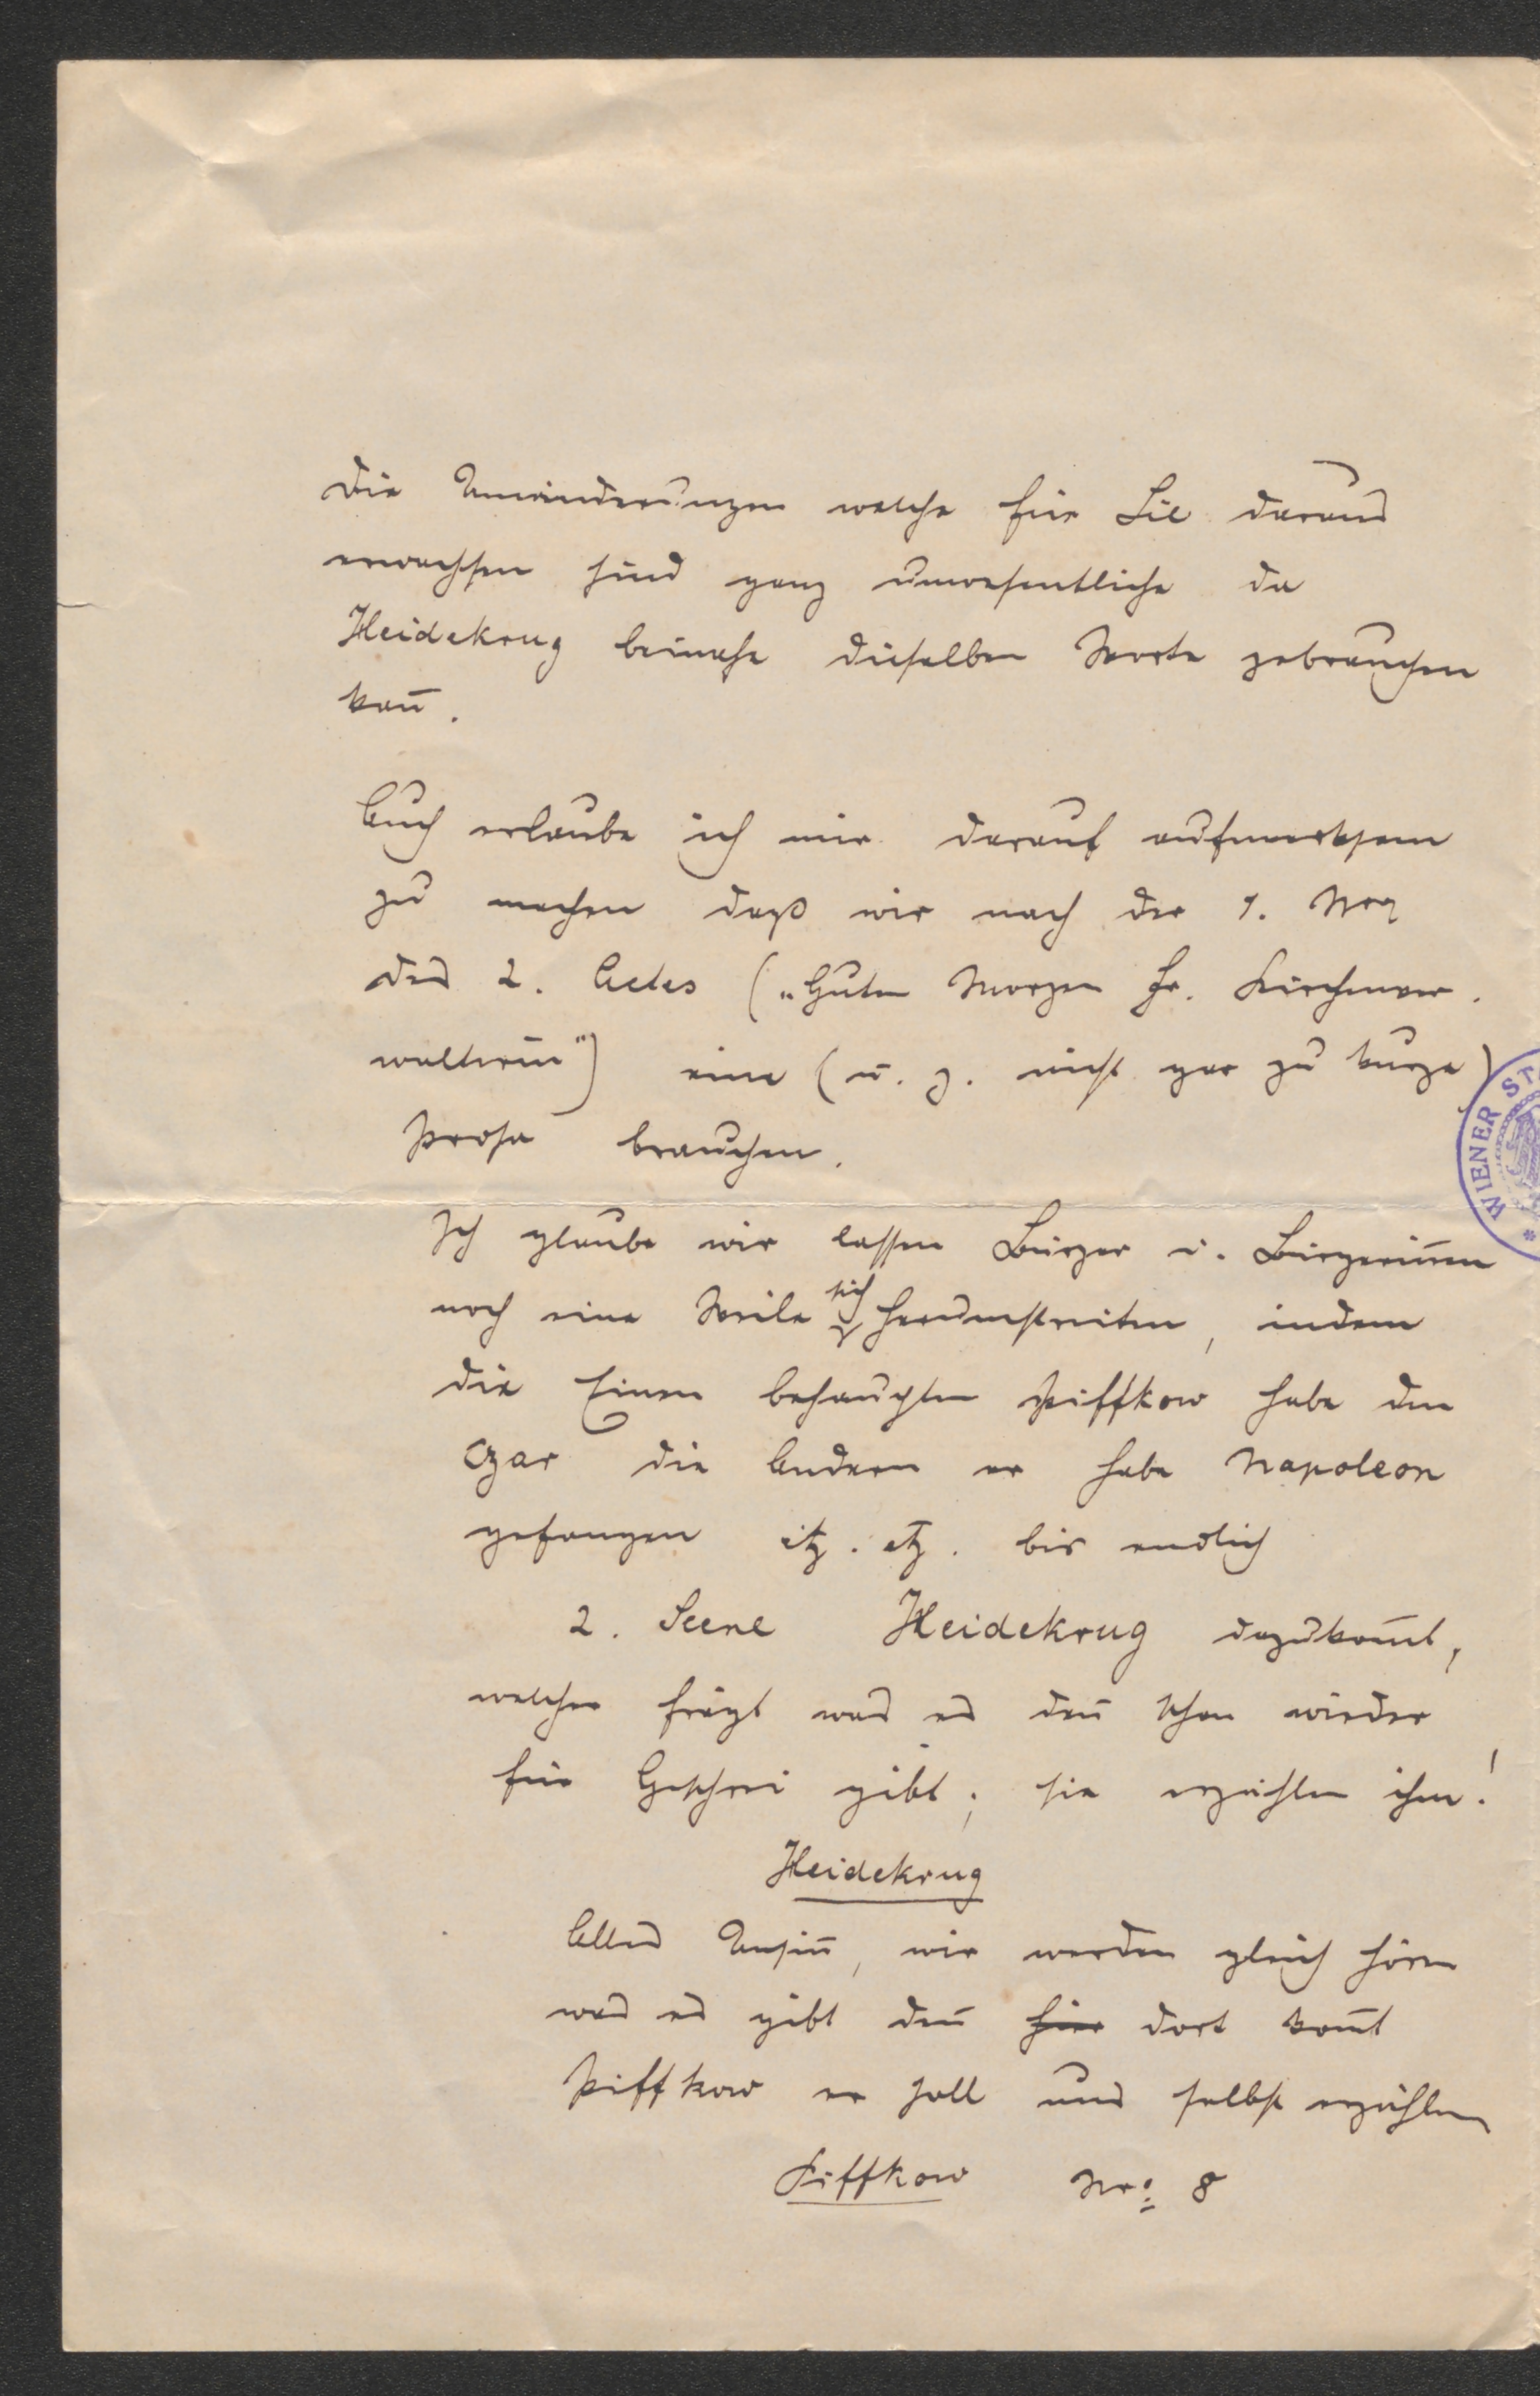 Die Umänderungen welche für Sie daraus
erwachsen sind ganz unwesentliche da
Heidekrug beinahe dieselben Worte gebrauchen
kan̄.
Auch erlaube ich mir darauf aufmerksam
zu machen daß wir nach der 1. Nro
des 2. Actes („Guten Morgen Fr. Kirchenver-
walterin") eine (u. z. nicht gar zu kurze)
Prosa brauchen.
Ich glaube wir lassen Bürger u. Bürgerin̄en
noch eine Weile sich herumstreiten, indem
die Einen behaupten Piffkow habe den
Czar die Andern er habe Napoleon
gefangen etz. etz. bis endlich
2. Scene Heidekrug dazukom̄t,
welcher frägt was es den̄ schon wieder
für Geschrei gibt; sie erzählen ihm!
Heidekrug
Alles Unsin̄, wir werden gleich hören
was es gibt den̄ hier dort kom̄t
Piffkow er soll uns selbst erzählen
Piffkow Nro: 8
WIENER ST